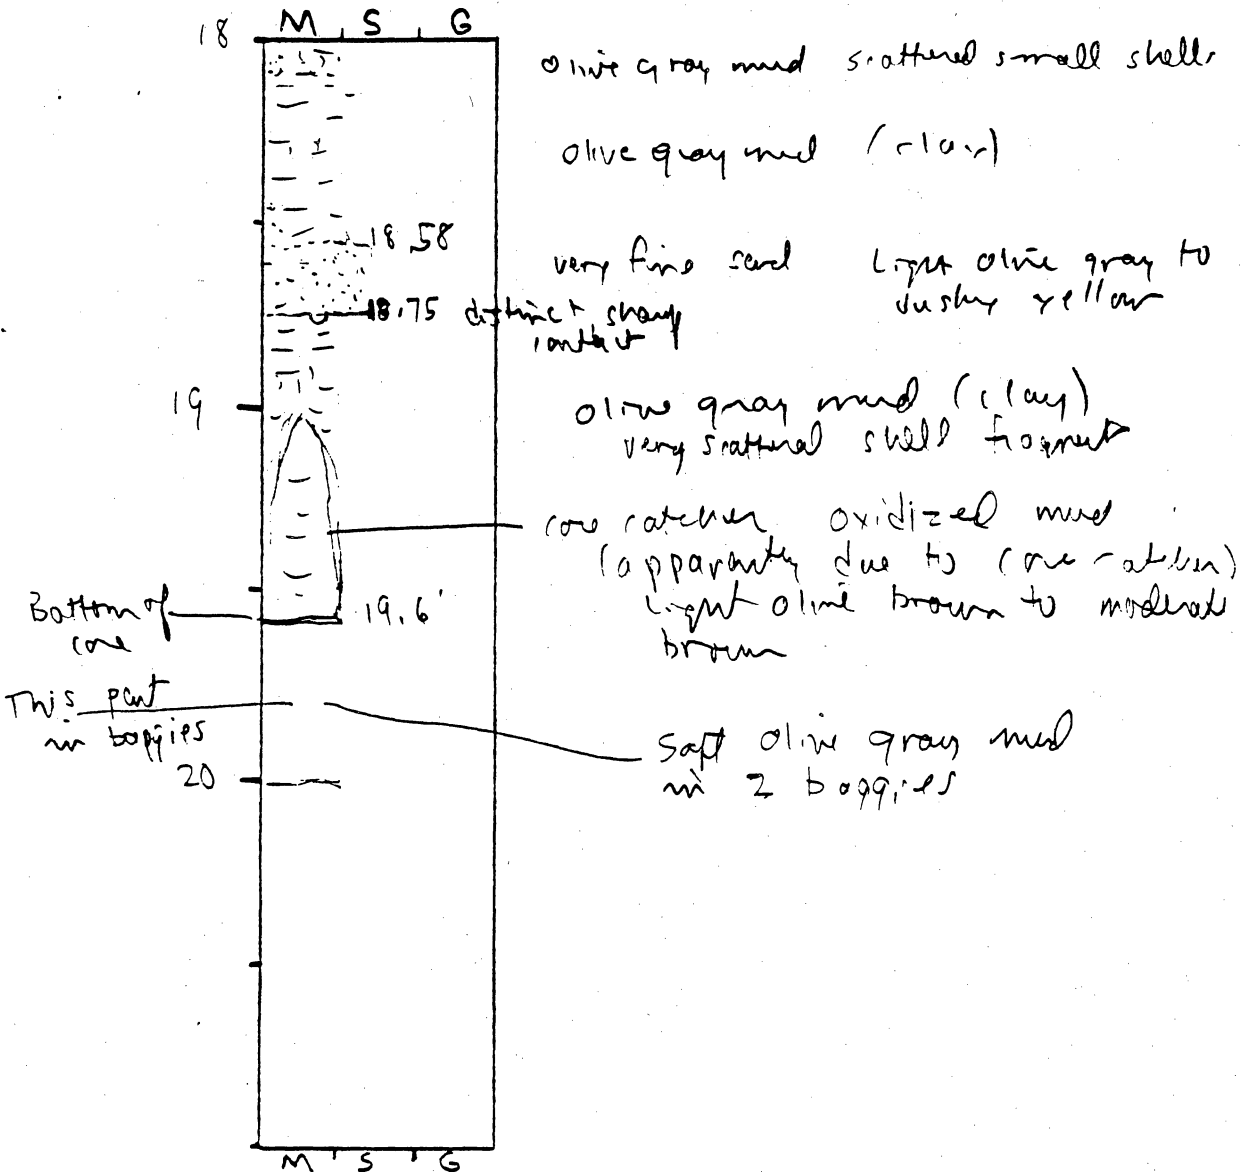 M S G
18
olive gray mud scattered small shells
olive gray mud (clay)
18.58
very fine sand Light olive gray to
dusky yellow
18.75 distinct sharp
contact
19
olive gray mud (clay)
very scattered shell fragments
core catcher oxidized mud
(apparently due to core catcher)
Light olive brown to moderate
brown
Bottom of
core
19.6'
This part
in baggies
Soft olive gray mud
in 2 baggies
20
M S G